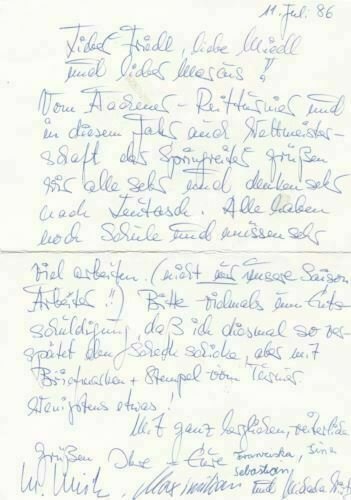 11. Juli 86
Lieber Friedl, liebe Miedl
und lieber Marcus!!
Vom Aachener-Reitturnier und
in diesem Jahr auch Weltmeister-
schaft der Springreiter grüßen
wir alle sehr und denken sehr
nach Leutasch. Alle haben
noch Schule und müssen sehr
viel arbeiten. (nicht nur unsere Saison
Arbeiter!!) Bitte vielmals um Ent-
schuldigung, daß ich diesmal so ver-
spätet den Scheck schicke, aber mit
Briefmarken + Stempel vom Turnier.
Wenigstens etwas!
Mit ganz herzlichen,
Grüßen Ihre - Eure Franziska,
Sebastian,
Maximilian und